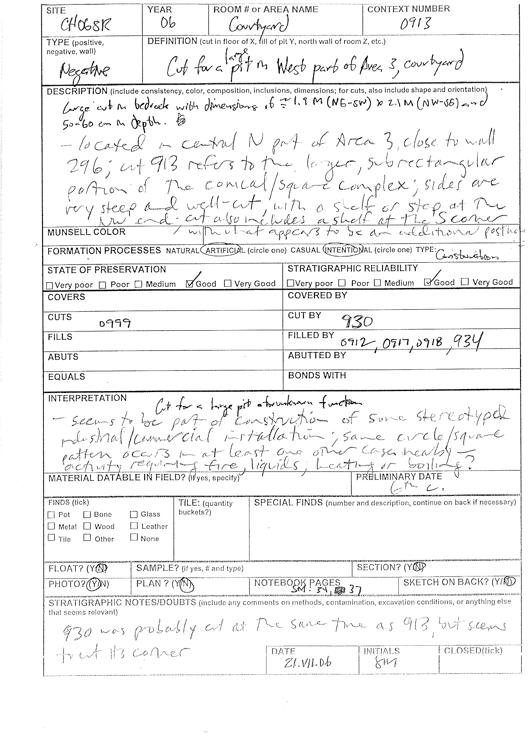 SITE YEAR ROOM # or AREA NAME CONTEXT NUMBER
CH06SR 06 Courtyard 0913
TYPE (positive, negative, wall) DEFINITION (cut in floor of X, fill of pit Y, north wall of room Z, etc.)
Negative Cut for a large pit in West part of Area 3, courtyard
DESCRIPTION (include consistency, color, composition, inclusions, dimensions; for cuts, also include shape and orientation)
Large cut in bedrock with dimensions of ≈ 1.9 M (NE-SW) x 2.1 M (NW-SE) and
50-60 cm in depth.
- located in central N part of Area 3, close to wall
296; cut 913 refers to the larger, subrectangular
portion of the conical/square complex; sides are
very steep and well-cut, with a shelf or step at the
NW end - cut also includes a shelf at the S corner
MUNSELL COLOR / with what appears to be an additional posthole
FORMATION PROCESSES NATURAL ARTIFICIAL (circle one) CASUAL INTENTIONAL (circle one) TYPE: Construction
STATE OF PRESERVATION STRATIGRAPHIC RELIABILITY
Very poor Poor Medium Good Very Good Very poor Poor Medium Good Very Good
COVERS COVERED BY
CUTS 0999 CUT BY 930
FILLS FILLED BY 0912, 0917, 0918, 934
ABUTS ABUTTED BY
EQUALS BONDS WITH
INTERPRETATION Cut for a large pit of unknown function
- seems to be part of construction of some stereotyped
industrial/commercial installation; same circle/square
pattern occurs in at least one other case nearby -
activity requiring fire, liquids, heating or boiling?
MATERIAL DATABLE IN FIELD? (if yes, specify) PRELIMINARY DATE
6th c.
FINDS (tick) TILE: (quantity buckets?) SPECIAL FINDS (number and description, continue on back if necessary)
Pot Bone Glass
Metal Wood Leather
Tile Other None
FLOAT? (Y/N) SAMPLE? (if yes, # and type) SECTION? (Y/N)
PHOTO? (Y/N) PLAN? (Y/N) NOTEBOOK PAGES SM: 34, 37 SKETCH ON BACK? (Y/N)
STRATIGRAPHIC NOTES/DOUBTS (include any comments on methods, contamination, excavation conditions, or anything else
that seems relevant)
930 was probably cut at the same time as 913, but seems
to cut its corner
DATE INITIALS CLOSED(tick)
21.VII.06 SM